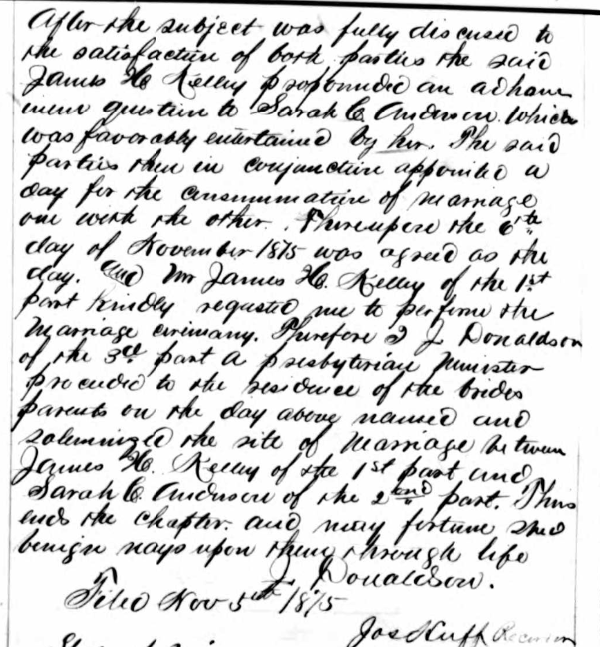 After the subject was fully discused to
the satisfaction of both parties the said
James H. Kelley propounded an adhan
ment question to Sarah C. Anderson. Which
was favorably entertained by her. The said
parties then in conjunction appointed a
day for the consummation of marriage
one with the other. Thereupon the 6th
day of November 1875 was agreed as the
day. And Mr James H. Kelley of the 1st
part kindly requested me to perform the
Marriage cerimony. Therefore I J Donaldson
of the 3rd part a presbyterian Minister
proceded to the residence of the brides
parents on the day above named and
solemnized the rite of Marriage between
James H. Kelley of the 1st part and
Sarah C. Anderson of the 2nd part. Thus
ends the chapter. and may fortune shed
benign rays upon them through life
J Donaldson.
Filed Nov 5th 1875
Jos Huff Recorder